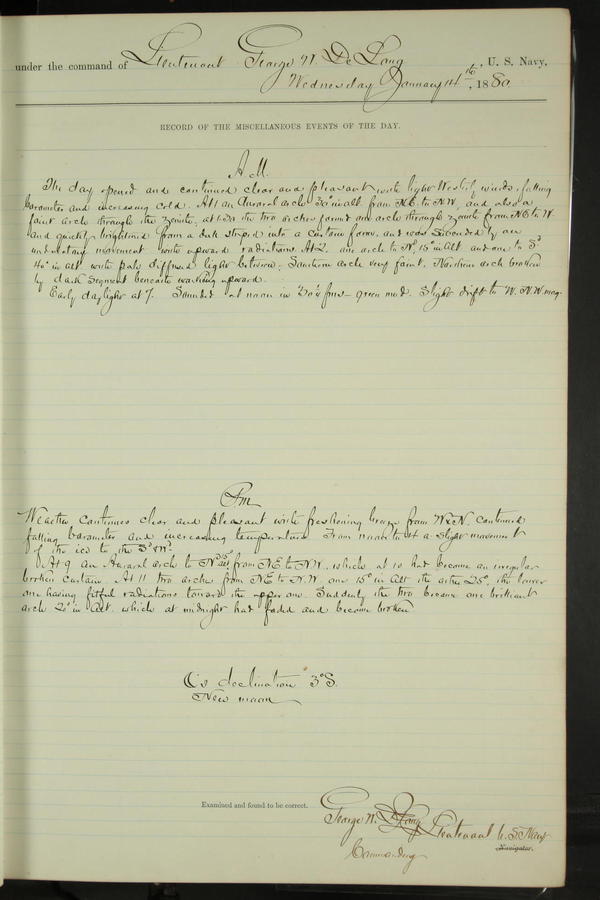 under the command of Lieutenant George W. De Long, U. S. Navy,
Wednesday January 14th, 1880
RECORD OF THE MISCELLANEOUS EVENTS OF THE DAY.
A M.
The day opened and continued clear and pleasant with light Westerly winds, falling
barometer and increasing cold. At 1 an Auroral arch 30° in alt. from N.E. to N.W. and also a
faint arch through the zenith, at the two arches formed one arch through zenith from N.E. to W.
and quickly brightened from a pale striped into a curtain form, and was succeeded by an
undulatory movement with upward radiations. At 2. one arch to N°, 15° in alt and one to S°
40° in alt with pale diffused light between. Southern arch very faint, Northern arch broken
by dark segment beneath working upward.
Early daylight at 7. Sounded at noon in fms - green mud. Slight drift to W.N.W. mag.
Pm
Weather continues clear and pleasant with freshening breeze from W & N. continued
falling barometer and increasing temperature. From noon to a slight movement
of the ice to the S° & W°.
At 9 an Auroral arch to N° from N.E. to N.W. which at 10 had become an irregular
broken curtain. At 11 two arches from N.E. to N.W. one 15° in Alt the other 25°, the lower
one having fitful radiations towards the upper one. Suddenly the two became one brilliant
arch 20° in Alt. which at midnight had faded and become broken
declination 3° S.
New moon
Examined and found to be correct.
George W. De Long Lieutenant U.S. Navy
Navigator.
Commanding